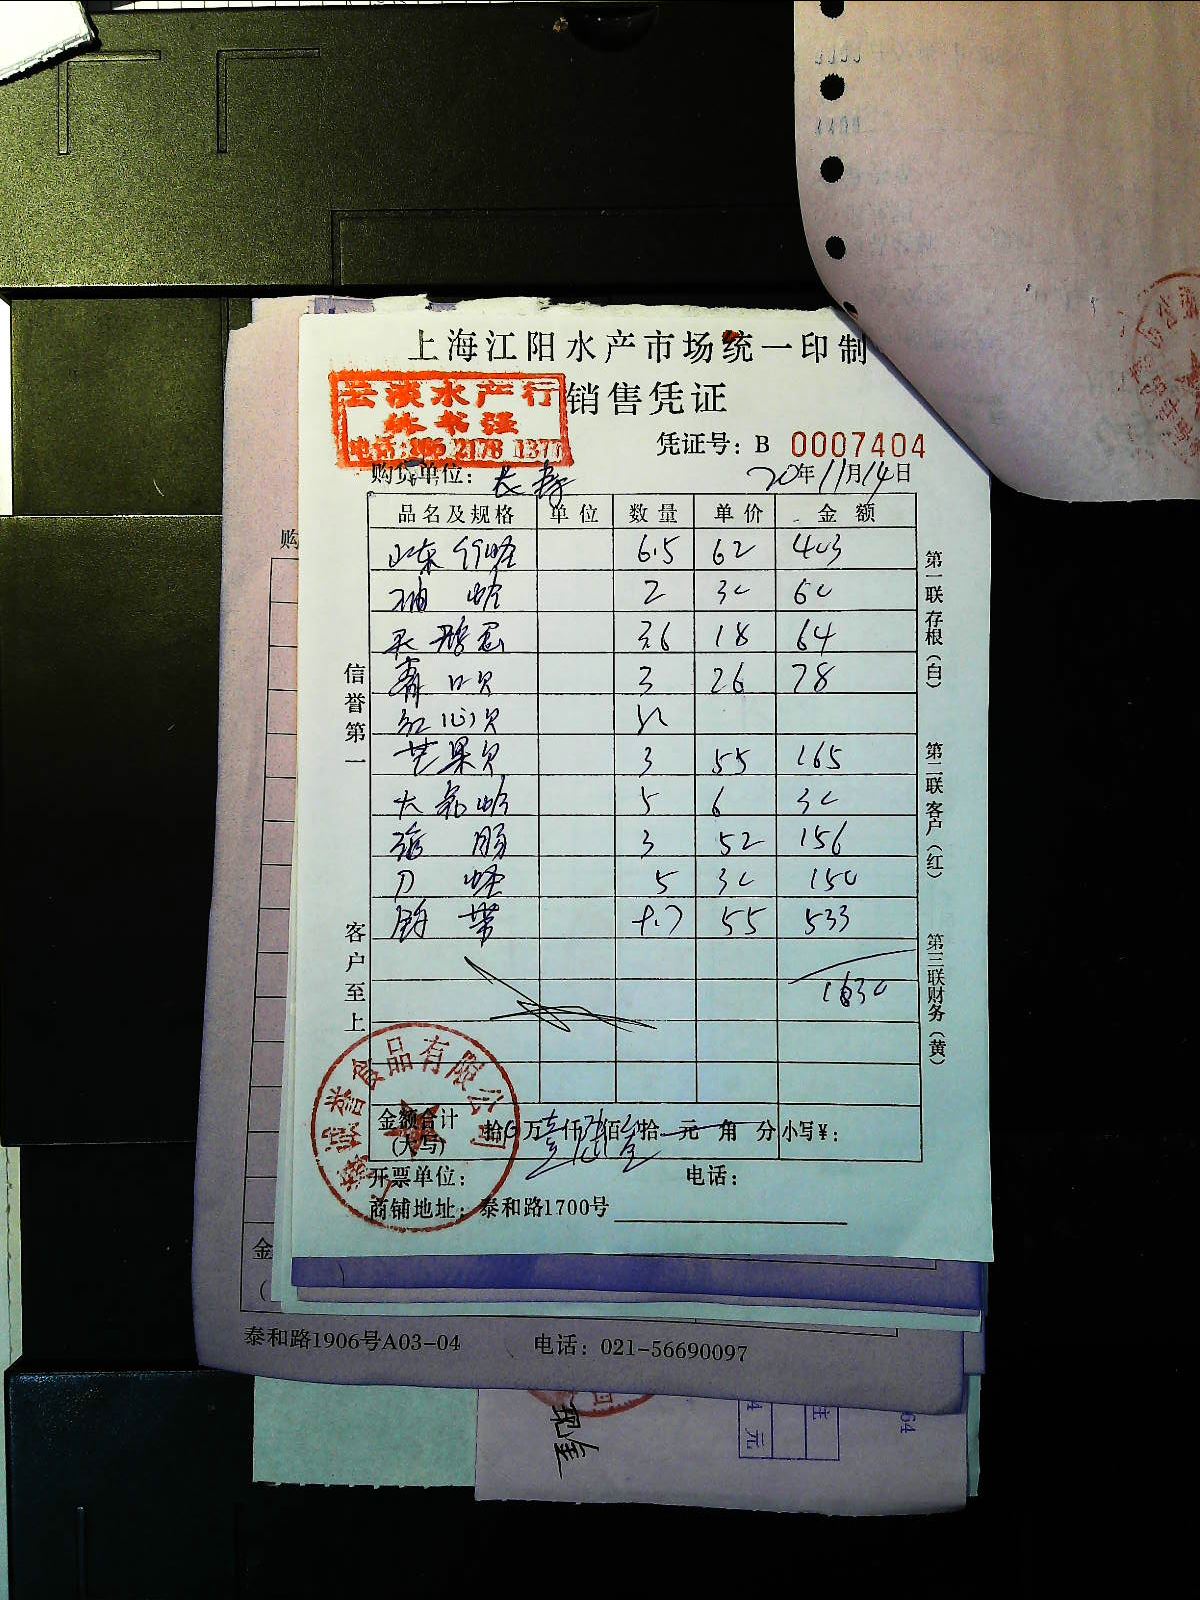 上海江阳水产市场统一印制
云淡水产行
林书强
销售凭证
凭证号: B 0007404
购货单位: 长寿
20年11月14日
品名及规格 单位 数量 单价 金额
山东 6.5 62 403
油蛤 2 30 60
3.6 18 64
青口贝 3 26 78
红心贝
芒果贝 3 55 165
大 蛤 5 6 30
肠 3 52 156
刀蛏 5 30 150
带 9.7 55 533
1630
信誉第一
客户至上
第一联 存根（白）
第二联 客户（红）
第三联 财务（黄）
食品有限公司
金额合计
(大写)
拾 万 壹 仟 佰 拾 元 角 分 小写¥:
开票单位:
电话:
商铺地址: 泰和路1700号
购
金
泰和路1906号A03-04
电话: 021-56690097
现金
元
64